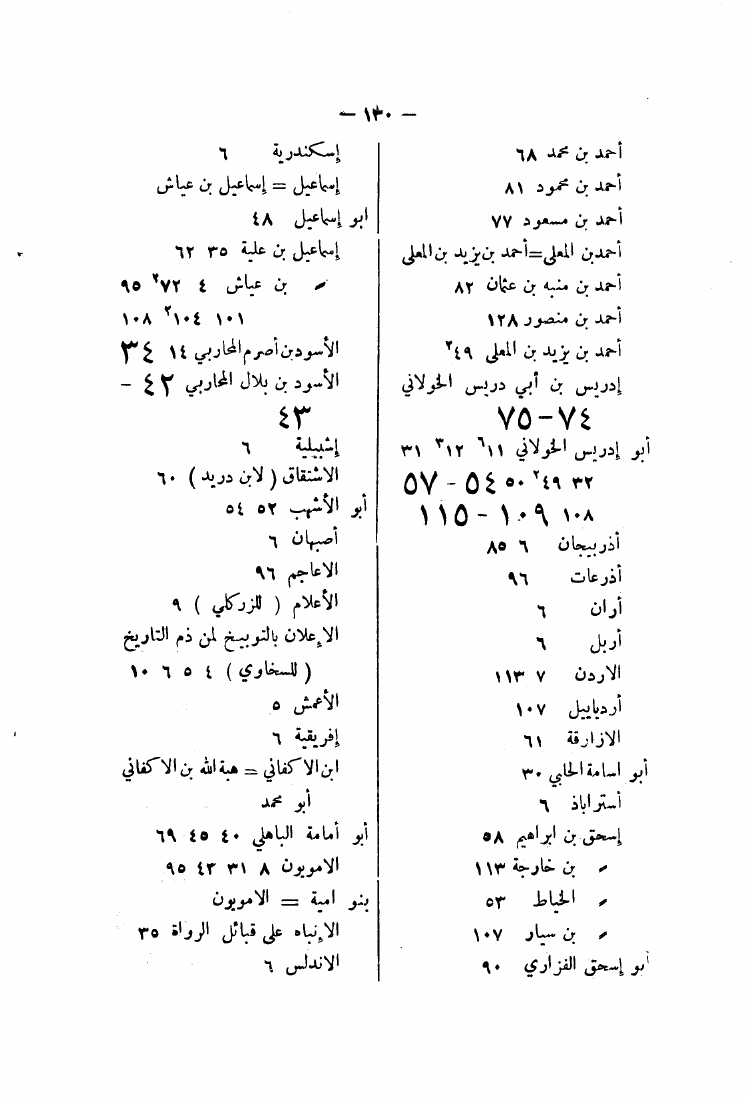 — ١٣٠ —
أحمد بن محمد ٦٨
أحمد بن محمود ٨١
أحمد بن مسعود ٧٧
أحمدبن المعلى=أحمد بن يزيد بن المعلى
أحمد بن منبه بن عثمان ٨٢
أحمد بن منصور ١٢٨
أحمد بن يزيد بن المعلى ٤٩٢
إدريس بن أبي دريس الخولاني
٧٤-٧٥
أبو إدريس الخولاني ١١٦ ١٢٣ ٣١
٣٢ ٤٩٢ ٥٠ ٥٤ - ٥٧
١٠٨ ١٠٩ - ١١٥
أذربيجان ٦ ٨٥
أذرعات ٩٦
أران ٦
أربل ٦
الاردن ٧ ١١٣
أردباييل ١٠٧
الازارقة ٦١
أبو اسامة الحلبي ٣٠
أستراباذ ٦
إسحق بن ابراهيم ٥٨
〃 بن خارجة ١١٣
〃 الخياط ٥٣
〃 بن سيار ١٠٧
أبو إسحق الفزاري ٩٠
إسكندرية ٦
إسماعيل = إسماعيل بن عياش
ابو إسماعيل ٤٨
إسماعيل بن علية ٣٥ ٦٢
〃 بن عياش ٤ ٧٢٢ ٩٥
١٠١ ١٠٤٢ ١٠٨
الأسودبن أصرم المحاربي ١٤ ٣٤
الأسود بن بلال المحاربي ٤٢ -
٤٣
إشبيلية ٦
الاشتقاق ( لابن دريد ) ٦٠
أبو الأشهب ٥٢ ٥٤
أصبهان ٦
الاعاجم ٩٦
الأعلام ( للزركلي ) ٩
الإعلان بالتوبيخ لمن ذم التاريخ
( للسخاوي ) ٤ ٥ ٦ ١٠
الأعمش ٥
إفريقية ٦
ابن الاكفاني = هبة الله بن الاكفاني
أبو محمد
أبو أمامة الباهلي ٤٠ ٤٥ ٦٩
الامويون ٨ ٣١ ٤٣ ٩٥
بنو امية = الامويون
الإنباه على قبائل الرواة ٣٥
الاندلس ٦